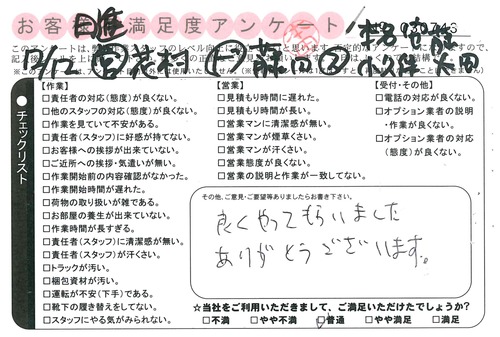 お客様満足度アンケート
チェックリスト
【作業】
□責任者の対応(態度)が良くない。
□他のスタッフの対応(態度)が良くない。
□作業を見ていて不安がある。
□責任者(スタッフ)に好感が持てない。
□お客様への挨拶が出来ていない。
□ご近所への挨拶・気遣いが無い。
□作業開始前の内容確認がなかった。
□作業開始時間が遅れた。
□荷物の取り扱いが雑である。
□お部屋の養生が出来ていない。
□作業時間が長すぎる。
□責任者(スタッフ)に清潔感が無い。
□責任者(スタッフ)が汗くさい。
□トラックが汚い。
□梱包資材が汚い。
□運転が不安(下手)である。
□靴下の履き替えをしてない。
□スタッフにやる気がみられない。
【営業】
□見積もり時間に遅れた。
□見積もり時間が長い。
□営業マンに清潔感が無い。
□営業マンが煙草くさい。
□営業マンが汗くさい。
□営業態度が良くない。
□営業の説明と作業が一致してない。
【受付・その他】
□電話の対応が良くない。
□オプション業者の説明
・作業が良くない。
□オプション業者の対応
(態度)が良くない。
その他、ご意見・ご要望等ありましたらお書き下さい。
良くやってもらいました
ありがとうございます。
☆当社をご利用いただきまして、ご満足いただけたでしょうか?
□不満 □やや不満 □普通 □やや満足 □満足